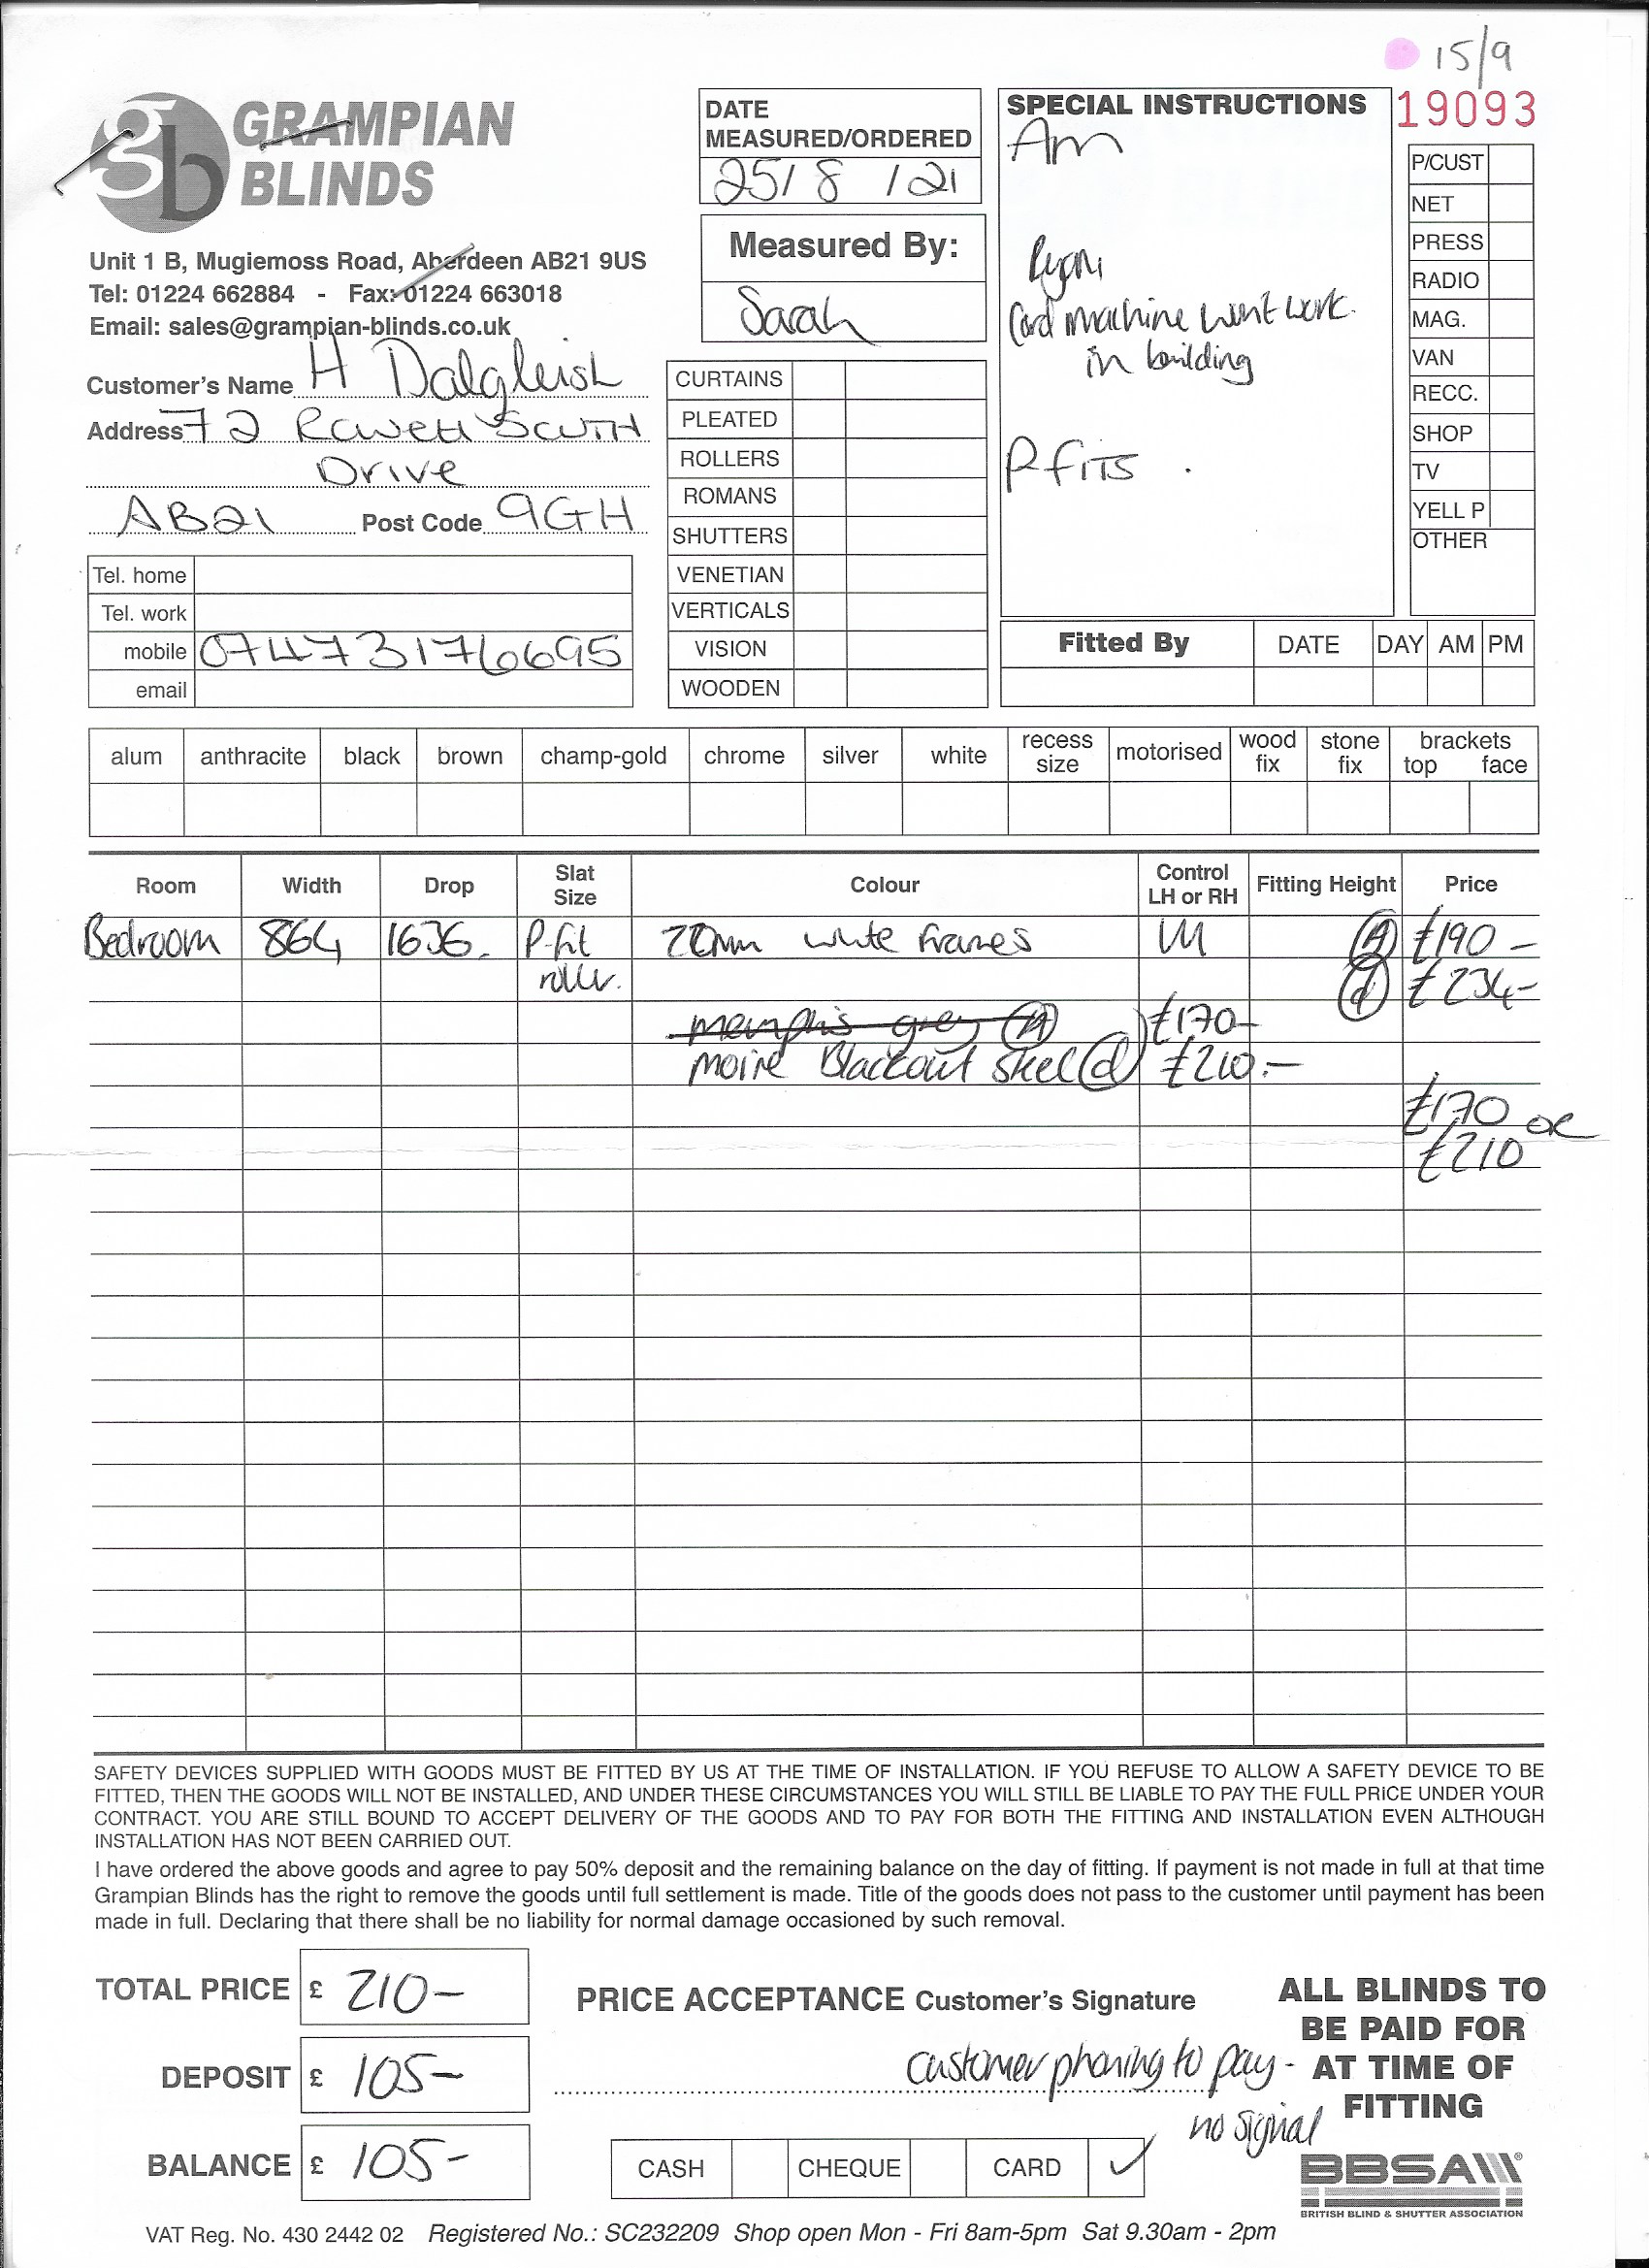 15/9
19093
GRAMPIAN
BLINDS
Unit 1 B, Mugiemoss Road, Aberdeen AB21 9US
Tel: 01224 662884 - Fax: 01224 663018
Email: sales@grampian-blinds.co.uk
Customer's Name H Dalgleish
Address 72 Rowett South
Drive
AB21 Post Code 9GH
Tel. home
Tel. work
mobile 07473176695
email
DATE
MEASURED/ORDERED
25/8/21
Measured By:
Sarah
CURTAINS
PLEATED
ROLLERS
ROMANS
SHUTTERS
VENETIAN
VERTICALS
VISION
WOODEN
SPECIAL INSTRUCTIONS
Am
Card machine wont work
in building
P fits.
P/CUST
NET
PRESS
RADIO
MAG.
VAN
RECC.
SHOP
TV
YELL P
OTHER
Fitted By DATE DAY AM PM
alum anthracite black brown champ-gold chrome silver white recess size motorised wood fix stone fix brackets top face
Room Width Drop Slat Size Colour Control LH or RH Fitting Height Price
Bedroom 864 1636. P-fit 20mm white frames (A) £190-
rollr. (d) £234-
memphis grey (A) £170-
moire Blackout Steel (d) £210.-
£170 or
£210
SAFETY DEVICES SUPPLIED WITH GOODS MUST BE FITTED BY US AT THE TIME OF INSTALLATION. IF YOU REFUSE TO ALLOW A SAFETY DEVICE TO BE
FITTED, THEN THE GOODS WILL NOT BE INSTALLED, AND UNDER THESE CIRCUMSTANCES YOU WILL STILL BE LIABLE TO PAY THE FULL PRICE UNDER YOUR
CONTRACT. YOU ARE STILL BOUND TO ACCEPT DELIVERY OF THE GOODS AND TO PAY FOR BOTH THE FITTING AND INSTALLATION EVEN ALTHOUGH
INSTALLATION HAS NOT BEEN CARRIED OUT.
I have ordered the above goods and agree to pay 50% deposit and the remaining balance on the day of fitting. If payment is not made in full at that time
Grampian Blinds has the right to remove the goods until full settlement is made. Title of the goods does not pass to the customer until payment has been
made in full. Declaring that there shall be no liability for normal damage occasioned by such removal.
TOTAL PRICE £ 210-
DEPOSIT £ 105-
BALANCE £ 105-
PRICE ACCEPTANCE Customer's Signature
customer phoning to pay -
no signal
CASH CHEQUE CARD ✓
ALL BLINDS TO
BE PAID FOR
AT TIME OF
FITTING
BBSA
BRITISH BLIND & SHUTTER ASSOCIATION
VAT Reg. No. 430 2442 02 Registered No.: SC232209 Shop open Mon - Fri 8am-5pm Sat 9.30am - 2pm